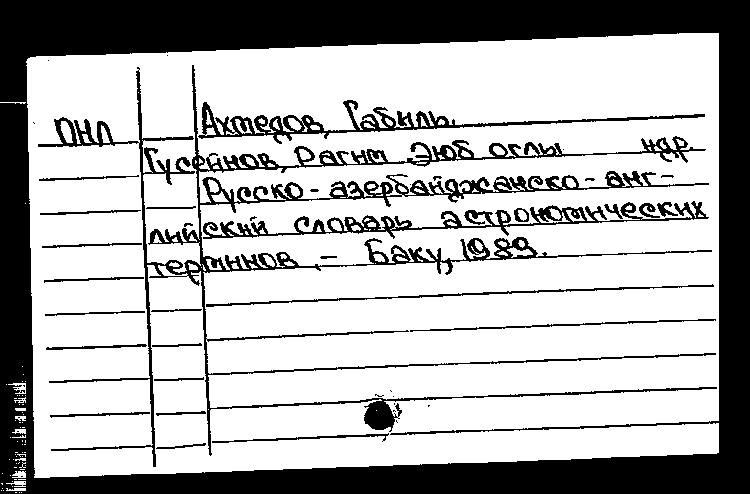 ПНЛ Ахмедов, Габиль.
Гусейнов, Рагим Эюб оглы и др.
Русско-азербайджанско-анг-
лийский словарь астрономических
терминов. - Баку, 1989.